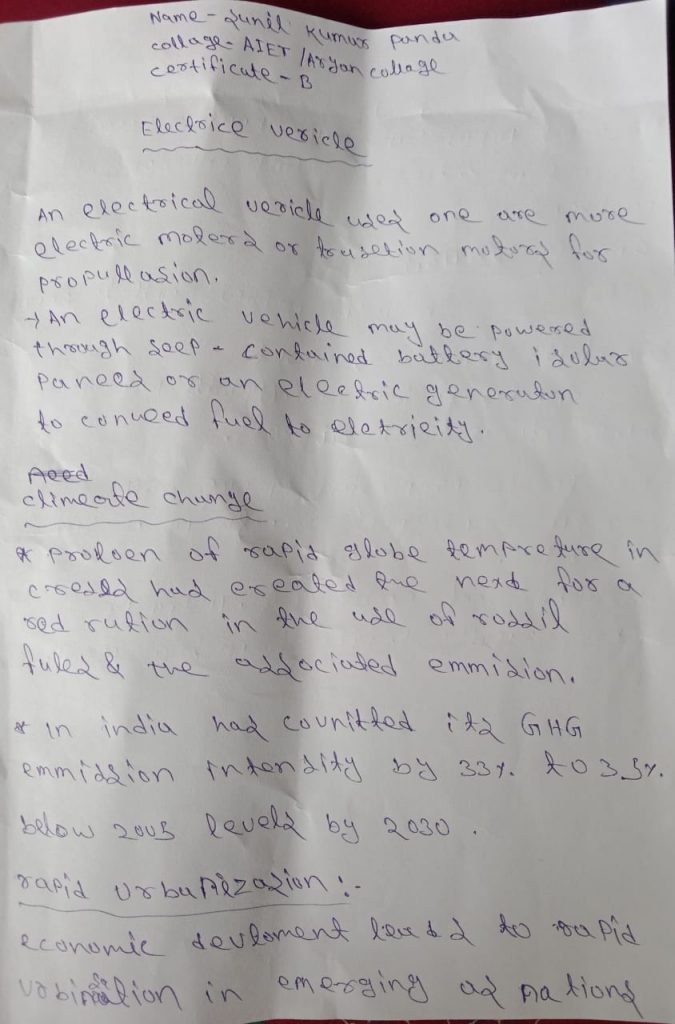 Name - Sunil Kumar Panda
collage - AIET / Aryan collage
certificate - B
Electrice vericle
An electrical vericle used one are more
electric moters or trusetion motors for
propullasion.
→ An electric vehicle may be powered
through seep - contained battery i solar
paneed or an electric generuton
to conveed fuel to eletricity.
Aeed
climeate change
* proloen of rapid globe tempreture in
creased had ereated the next for a
red ruttion in the use of rossil
fules & the associated emmision.
* in india had counitted its GHG
emmission intensity by 33%. to 35%.
below 2005 levels by 2030.
rapid urbanization :-
economic devloment leads to rapid
urbination in emerging as nations